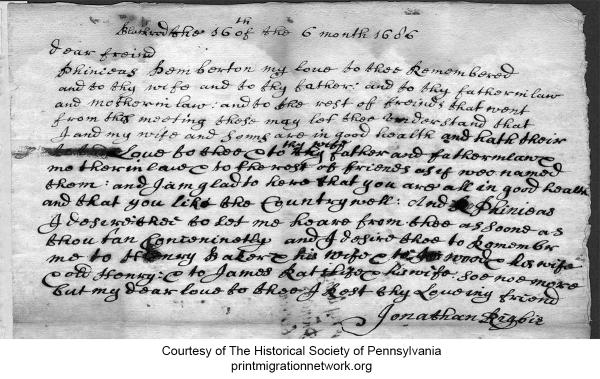 the 16th of the 6 month 1686
dear freind
Phineas Pemberton my love to thee Remembered
and to thy wife and to thy father: and to thy fatherinlaw
and motherinlaw: and to the rest of freinds that went
from this meeting these may let thee understand that
I and my wife and sonns are in good health and hath their
Love to thee & to thy father and fatherinlaw &
motherinlaw & to the rest of friends as if wee named
them: and I am glad to here that you are all in good health
and that you like the Countrywell: And Phinieas
I desire thee to let me heare from thee as soone as
thou can and I desire thee to Remembr
me to Henry Baker & his wife & to & his wife
& old Henry: & to James & his wife soe noe more
but my dear love to thee I Rest thy Loveing friend
Jonathan Rigbie
Courtesy of The Historical Society of Pennsylvania
printmigrationnetwork.org